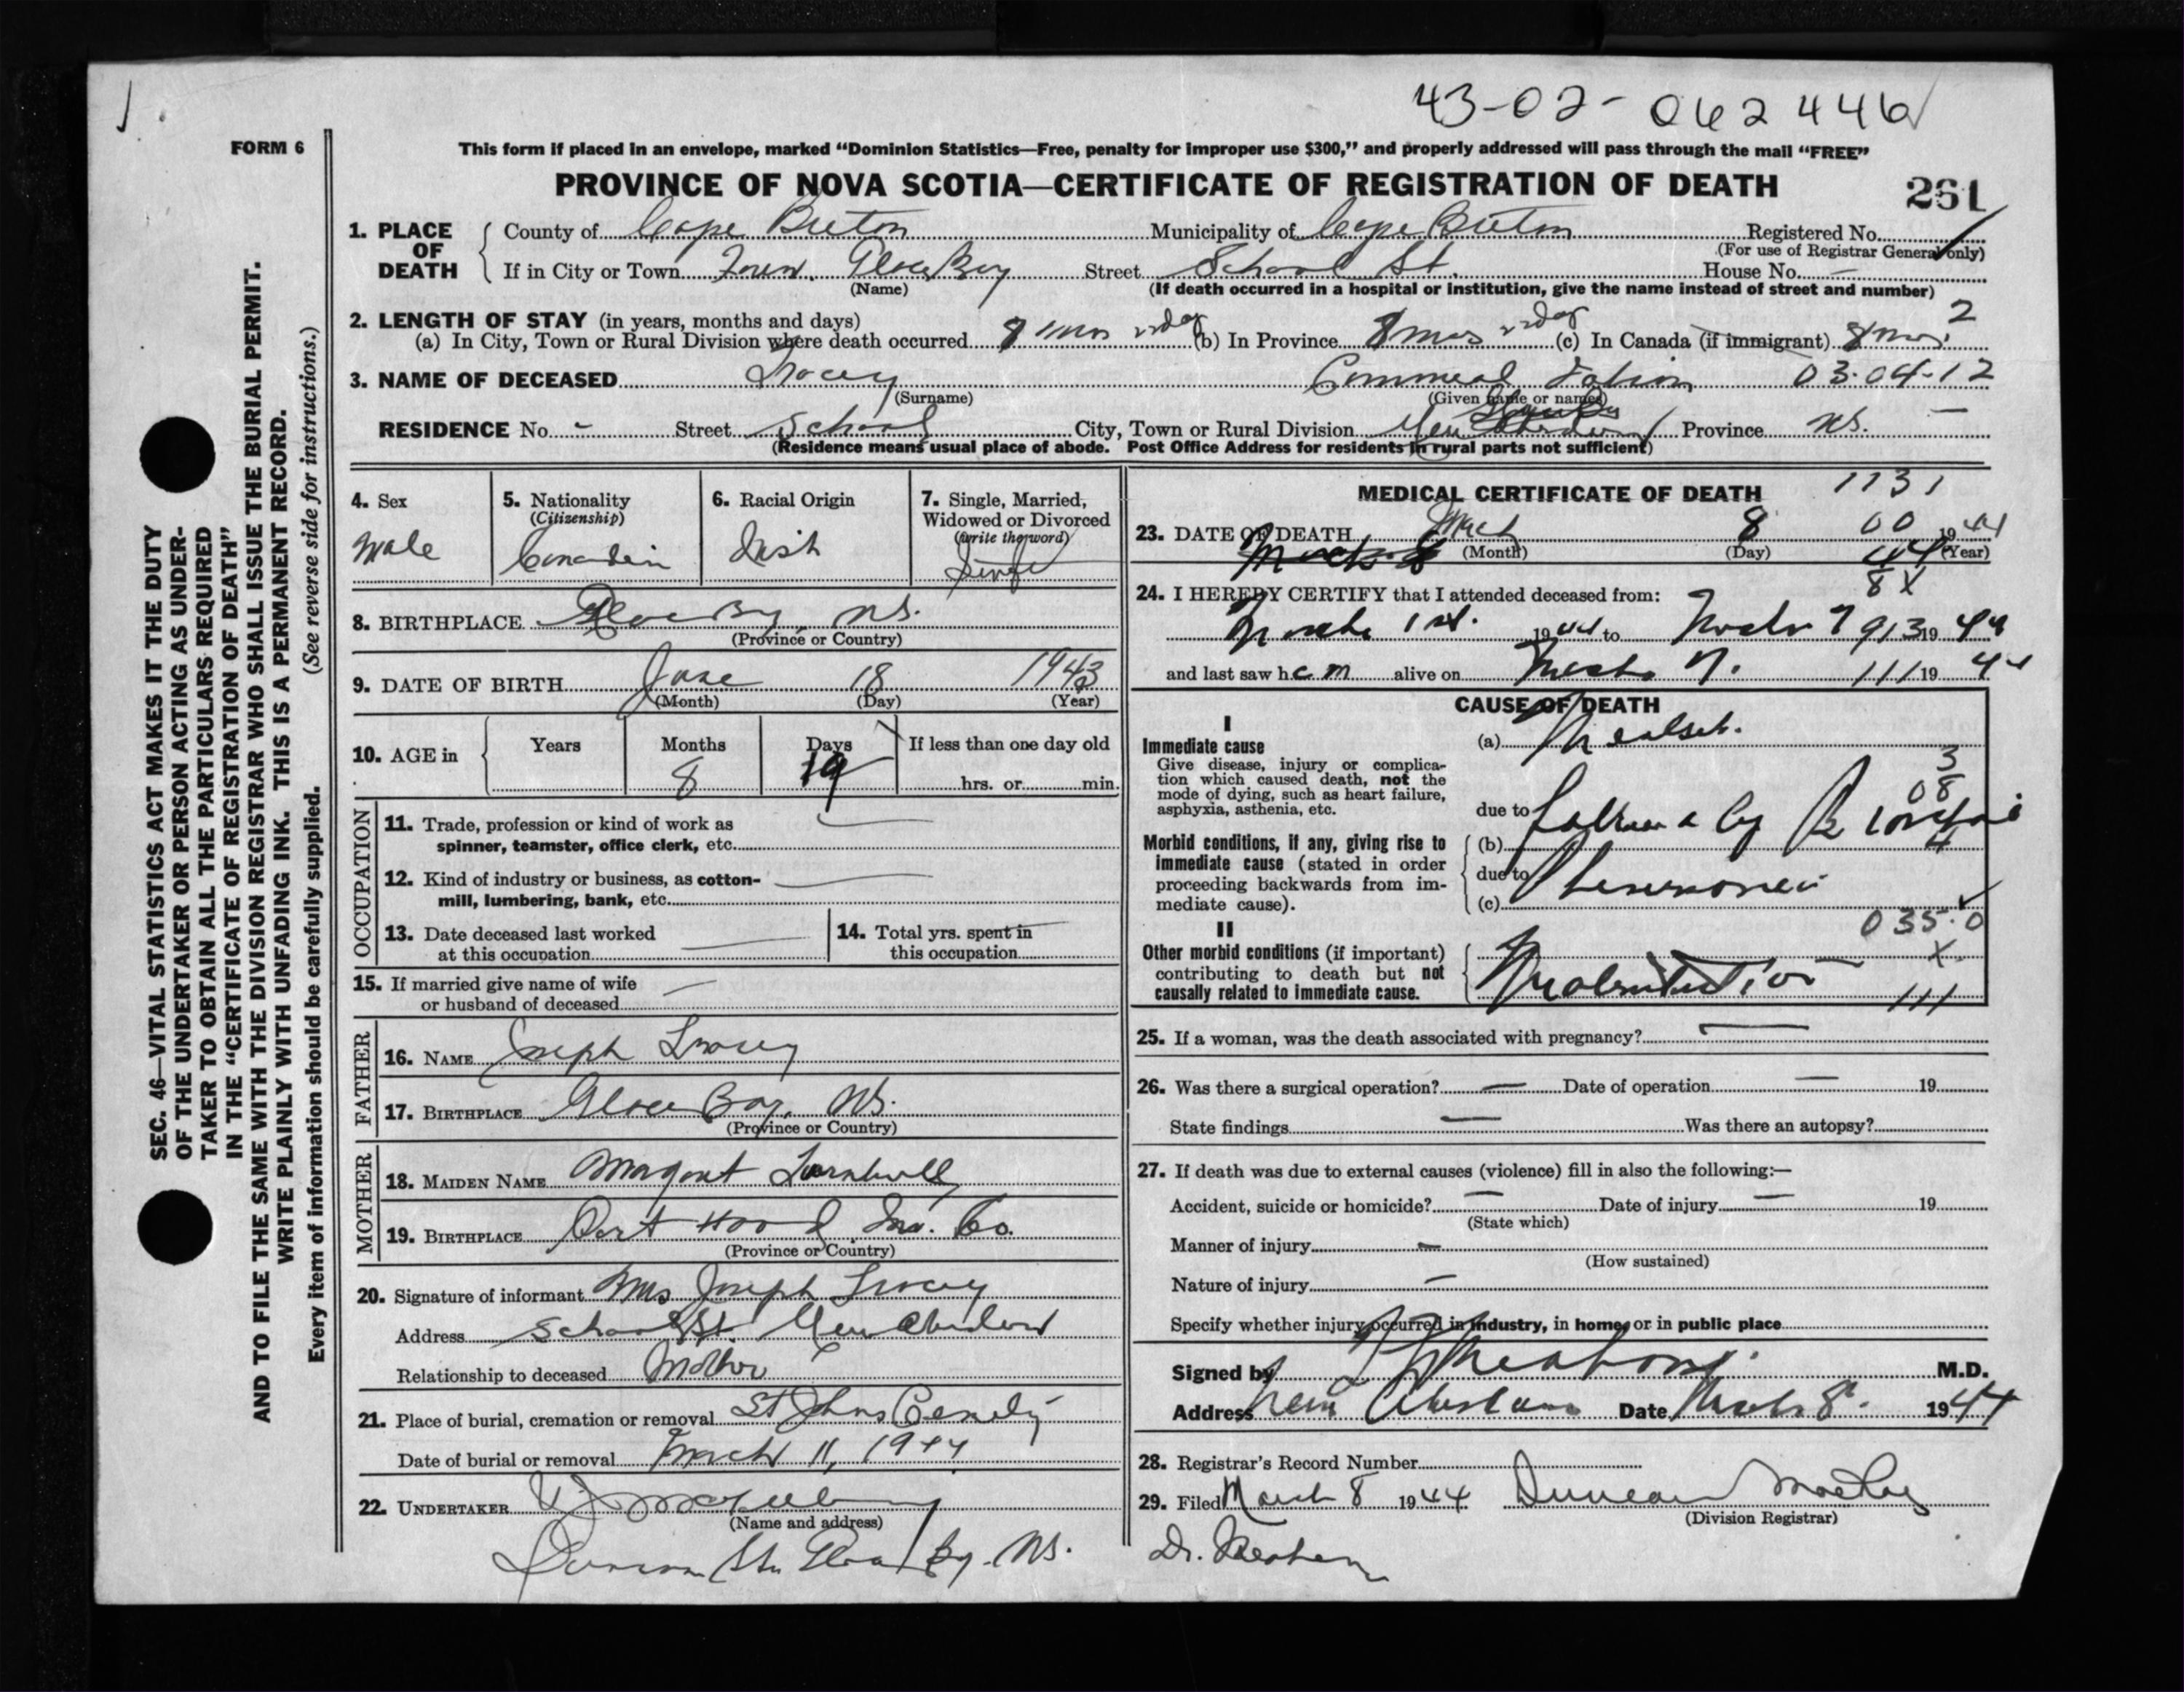 43-02-062446
FORM 6
This form if placed in an envelope, marked “Dominion Statistics—Free, penalty for improper use $300,” and properly addressed will pass through the mail “FREE”
PROVINCE OF NOVA SCOTIA—CERTIFICATE OF REGISTRATION OF DEATH
261
1. PLACE OF DEATH
County of Cape Breton Municipality of Cape Breton Registered No.
(For use of Registrar General only)
If in City or Town Town Glace Bay Street School St. House No. -
(Name) (If death occurred in a hospital or institution, give the name instead of street and number)
2. LENGTH OF STAY (in years, months and days) 2
(a) In City, Town or Rural Division where death occurred 8 mos (b) In Province 8 mos (c) In Canada (if immigrant) 8 mos.
3. NAME OF DECEASED Tracey 03-04-12
(Surname) (Given name or names)
RESIDENCE No. - Street School City, Town or Rural Division New Aberdeen Province NS. -
(Residence means usual place of abode. Post Office Address for residents in rural parts not sufficient)
4. Sex
Male
5. Nationality
(Citizenship)
Canadian
6. Racial Origin
Irish
7. Single, Married,
Widowed or Divorced
(write the word)
Single
8. BIRTHPLACE Glace Bay, NS.
(Province or Country)
9. DATE OF BIRTH June 18 1943
(Month) (Day) (Year)
10. AGE in Years Months Days If less than one day old
8 19 hrs. or min.
OCCUPATION
11. Trade, profession or kind of work as
spinner, teamster, office clerk, etc.
12. Kind of industry or business, as cotton-
mill, lumbering, bank, etc.
13. Date deceased last worked
at this occupation
14. Total yrs. spent in
this occupation
15. If married give name of wife
or husband of deceased
FATHER
16. NAME Joseph Tracey
17. BIRTHPLACE Glace Bay, NS.
(Province or Country)
MOTHER
18. MAIDEN NAME Margaret Turnbull
19. BIRTHPLACE Port Hood Inv. Co.
(Province or Country)
20. Signature of informant Mrs Joseph Tracey
Address School St. New Aberdeen
Relationship to deceased Mother
21. Place of burial, cremation or removal St Johns
Date of burial or removal March 11, 1944
22. UNDERTAKER
(Name and address)
St. Glace Bay. NS.
MEDICAL CERTIFICATE OF DEATH 1131
23. DATE OF DEATH March 8 00 1944
(Month) (Day) (Year)
March 8 44
8 X
24. I HEREBY CERTIFY that I attended deceased from:
March 1st. 1944 to March 7 913 1944
and last saw h alive on March 7. 111 1944
CAUSE OF DEATH
I
Immediate cause
Give disease, injury or complica-
tion which caused death, not the
mode of dying, such as heart failure,
asphyxia, asthenia, etc.
(a)
3
08
due to followed by
Morbid conditions, if any, giving rise to
immediate cause (stated in order
proceeding backwards from im-
mediate cause).
(b) 4
due to Pneumonia
(c)
035.0
II
Other morbid conditions (if important)
contributing to death but not
causally related to immediate cause.
X.
Malnutrition
111
25. If a woman, was the death associated with pregnancy?
26. Was there a surgical operation? — Date of operation — 19
State findings — Was there an autopsy?
27. If death was due to external causes (violence) fill in also the following:—
Accident, suicide or homicide? — Date of injury — 19
(State which)
Manner of injury -
(How sustained)
Nature of injury -
Specify whether injury occurred in industry, in home, or in public place
Signed by M.D.
Address New Aberdeen Date March 8. 1944
28. Registrar's Record Number
29. Filed March 8 1944 Duncan
(Division Registrar)
Dr.
SEC. 46—VITAL STATISTICS ACT MAKES IT THE DUTY
OF THE UNDERTAKER OR PERSON ACTING AS UNDER-
TAKER TO OBTAIN ALL THE PARTICULARS REQUIRED
IN THE “CERTIFICATE OF REGISTRATION OF DEATH”
AND TO FILE THE SAME WITH THE DIVISION REGISTRAR WHO SHALL ISSUE THE BURIAL PERMIT.
WRITE PLAINLY WITH UNFADING INK. THIS IS A PERMANENT RECORD.
Every item of information should be carefully supplied. (See reverse side for instructions.)